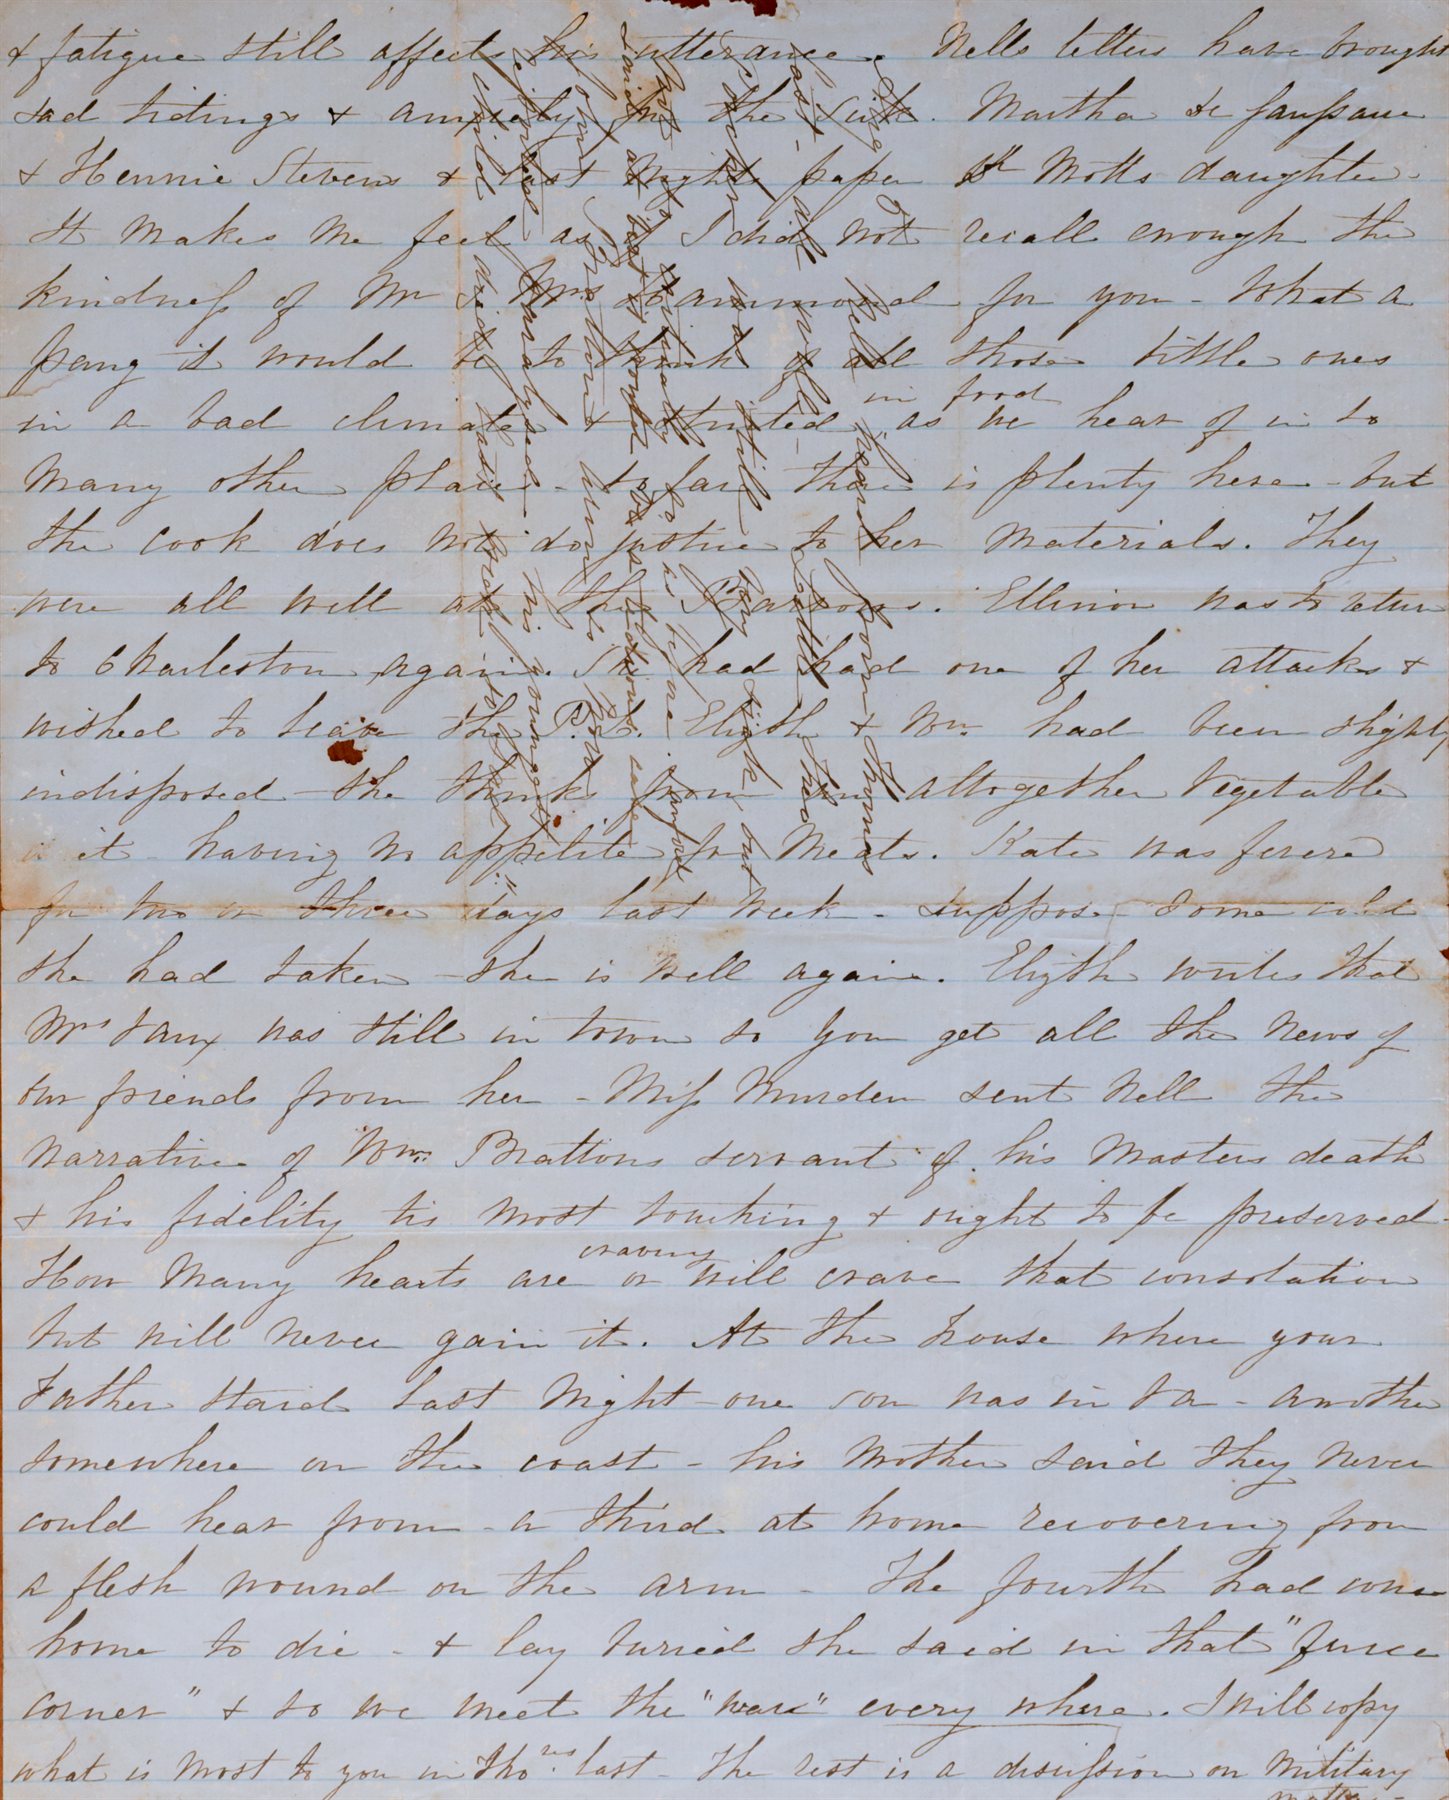 & fatigue still affects his utterance. Nells letters have brought
sad tidings & anxiety for the sick. Martha De Saussure
& Hennie Stevens & last nights paper Dr Motts daughter.
It makes me feel as if I did not recall enough the
kindness of Mr & Mrs Hammond for you - What a
pang it would be to think of all those little ones
in a bad climate & stinted in food as we hear of in so
many other places - So far there is plenty here - but
the cook does not do justice to her materials. They
were all well at the Barrows. Ellinor was to return
to Charleston again. She had had one of her attacks &
wished to leave the P.L. Elizth & Wm had been slightly
indisposed - she thinks from an altogether vegetable
diet - having no appetite for meats. Kate was fevered
for two or three days last week - suppose some cold
she had taken - she is well again. Elizth writes that
Mrs was still in town so you get all the news of
our friends from her - Miss Murden sent Nell the
narrative of Wm Brattons servant of his Masters death
& his fidelity tis most touching & ought to be preserved -
How many hearts are craving or will crave that consolation
but will never gain it. At the house where your
Father staid last night - one son was in Va - another
somewhere on the coast - his mother said they never
could hear from - a third at home recovering from
a flesh wound on the arm - The fourth had come
home to die - & lay buried she said in that "fence
corner" & so we meet the "war" every where. I will copy
what is most to you in Thos. last - The rest is a discussion on military
matters -
Since Nell heard from Thomas
last - all well - Little Theo
still very sick, but
as before
said at last it would be tedious case
John Bratton
paralysed - his youngest
child died